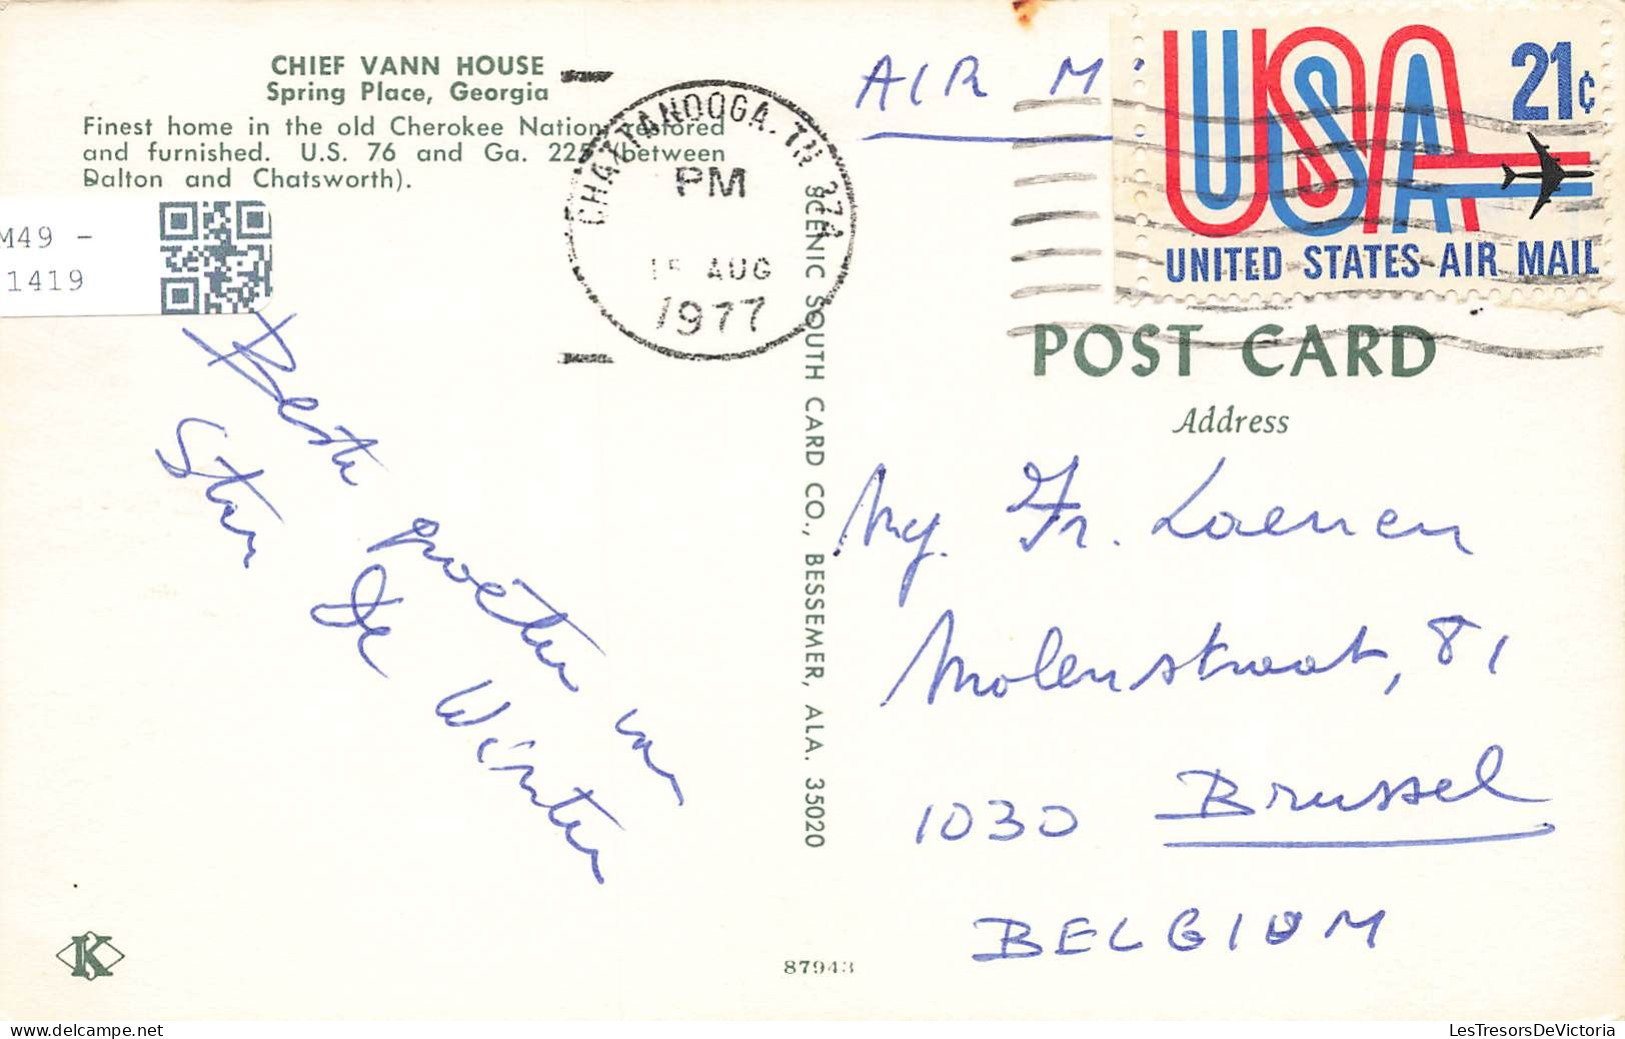 CHIEF VANN HOUSE
Spring Place, Georgia
Finest home in the old Cherokee Nation, restored
and furnished. U.S. 76 and Ga. 225 (between
Dalton and Chatsworth).
M49 -
1419
CHATTANOOGA, TN 374
PM
15 AUG
1977
AIR M
USA
21¢
UNITED STATES AIR MAIL
POST CARD
Address
SCENIC SOUTH CARD CO., BESSEMER, ALA. 35020
Beste groeten van
Stan De Winter
Fr. Laenen
Molenstraat, 81
1030 Brussel
BELGIUM
K
87943
LesTresorsDeVictoria